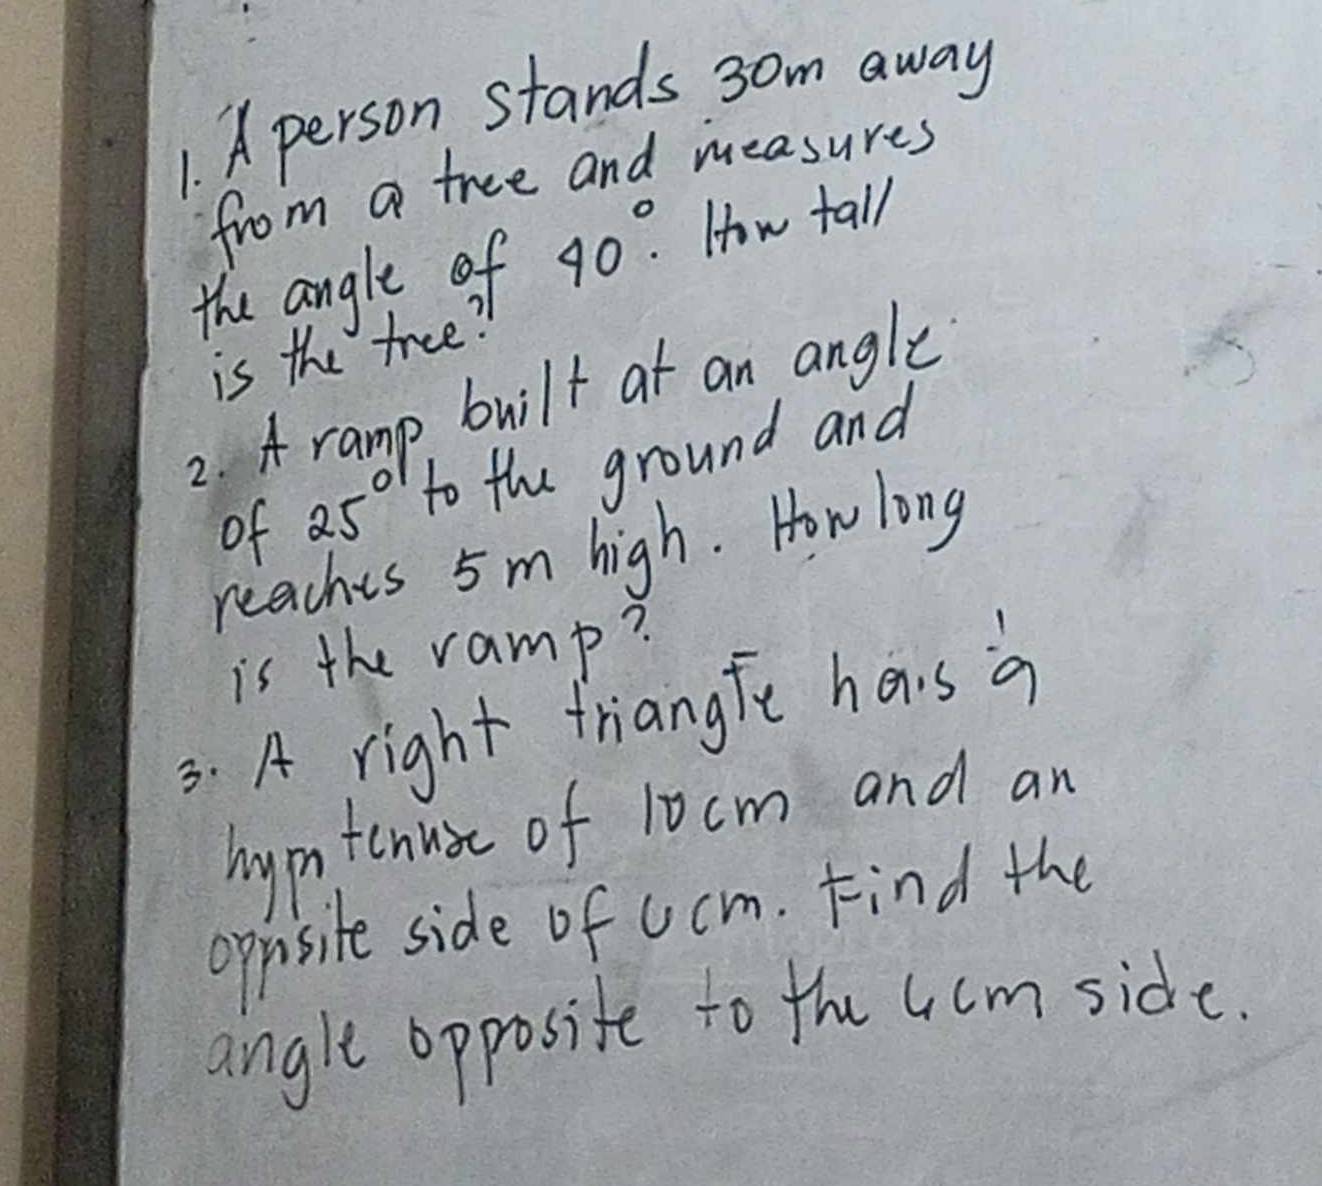 1. A person stands 30m away
from a tree and measures
the angle of 40°. How tall
is the tree?
2. A ramp built at an angle
of 25° to the ground and
reaches 5m high. How long
is the ramp?
3. A right triangle has a
hypotenuse of 10cm and an
opposite side of 6cm. Find the
angle opposite to the 6cm side.